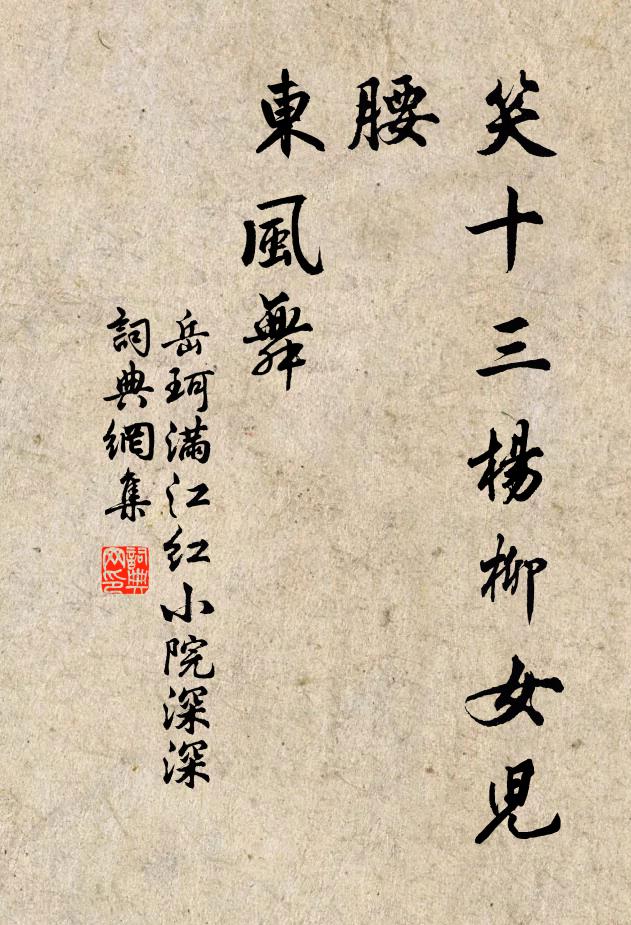 笑十三楊柳女兒
腰
東風舞
岳珂滿江紅小院深深
詞典網集
詞典
网印